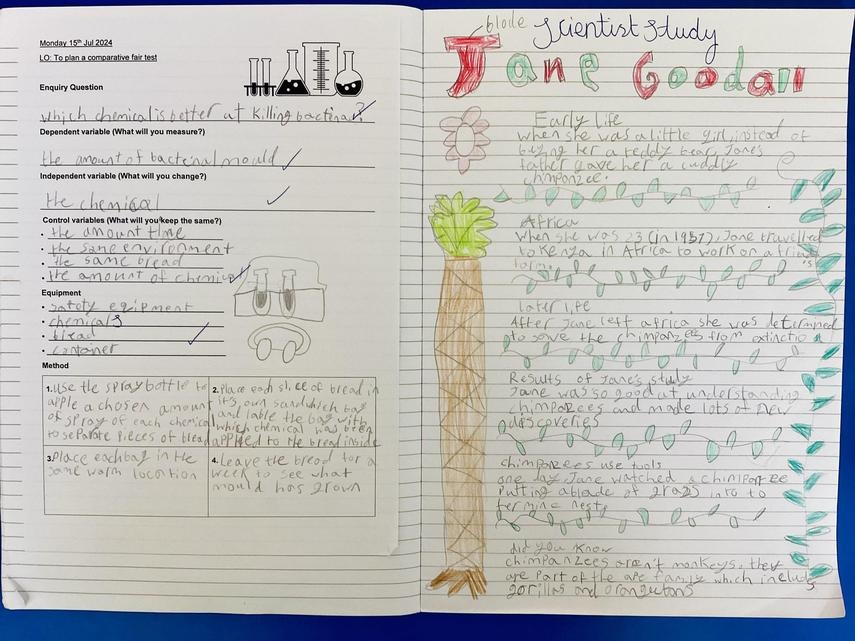 Monday 15th Jul 2024
LO: To plan a comparative fair test
Enquiry Question
which chemical is better at killing bacteria?
Dependent variable (What will you measure?)
the amount of bacterial mould
Independent variable (What will you change?)
the chemical
Control variables (What will you keep the same?)
• the amount time
• the same environment
• the same bread
• the amount of chemical
Equipment
• safety eqipment
• chemicals
• bread
• container
Method
1. Use the spray bottle to
apple a chosen amount
of spray of each chemical
to separate pieces of bread
2. Place each slice of bread in
it's own sandwhich bag
and lable the bag with
which chemical has been
applied to the bread inside
3. Place each bag in the
same warm location
4. Leave the bread for a
week to see what
mould has grown
Scientist Study
Jane Goodall
Early life
When she was a little girl, instead of
buying her a teddy bear, Jane's
father gave her a cuddly
chimpanzee.
Africa
When she was 23 (in 1957), Jane travelled
to Kenya in Africa to work on a
later life
After Jane left africa she was determined
to save the chimpanzees from
Results of Jane's study
Jane was so good at understanding
chimpanzees and made lots of new
discoveries
chimpanzees use tools
one day, Jane watched a chimpanzee
Putting a blade of grass into to
termine nest
did you know
chimpanzees aren't monkeys, they
are part of the ape family which includs
gorillas and orangutans